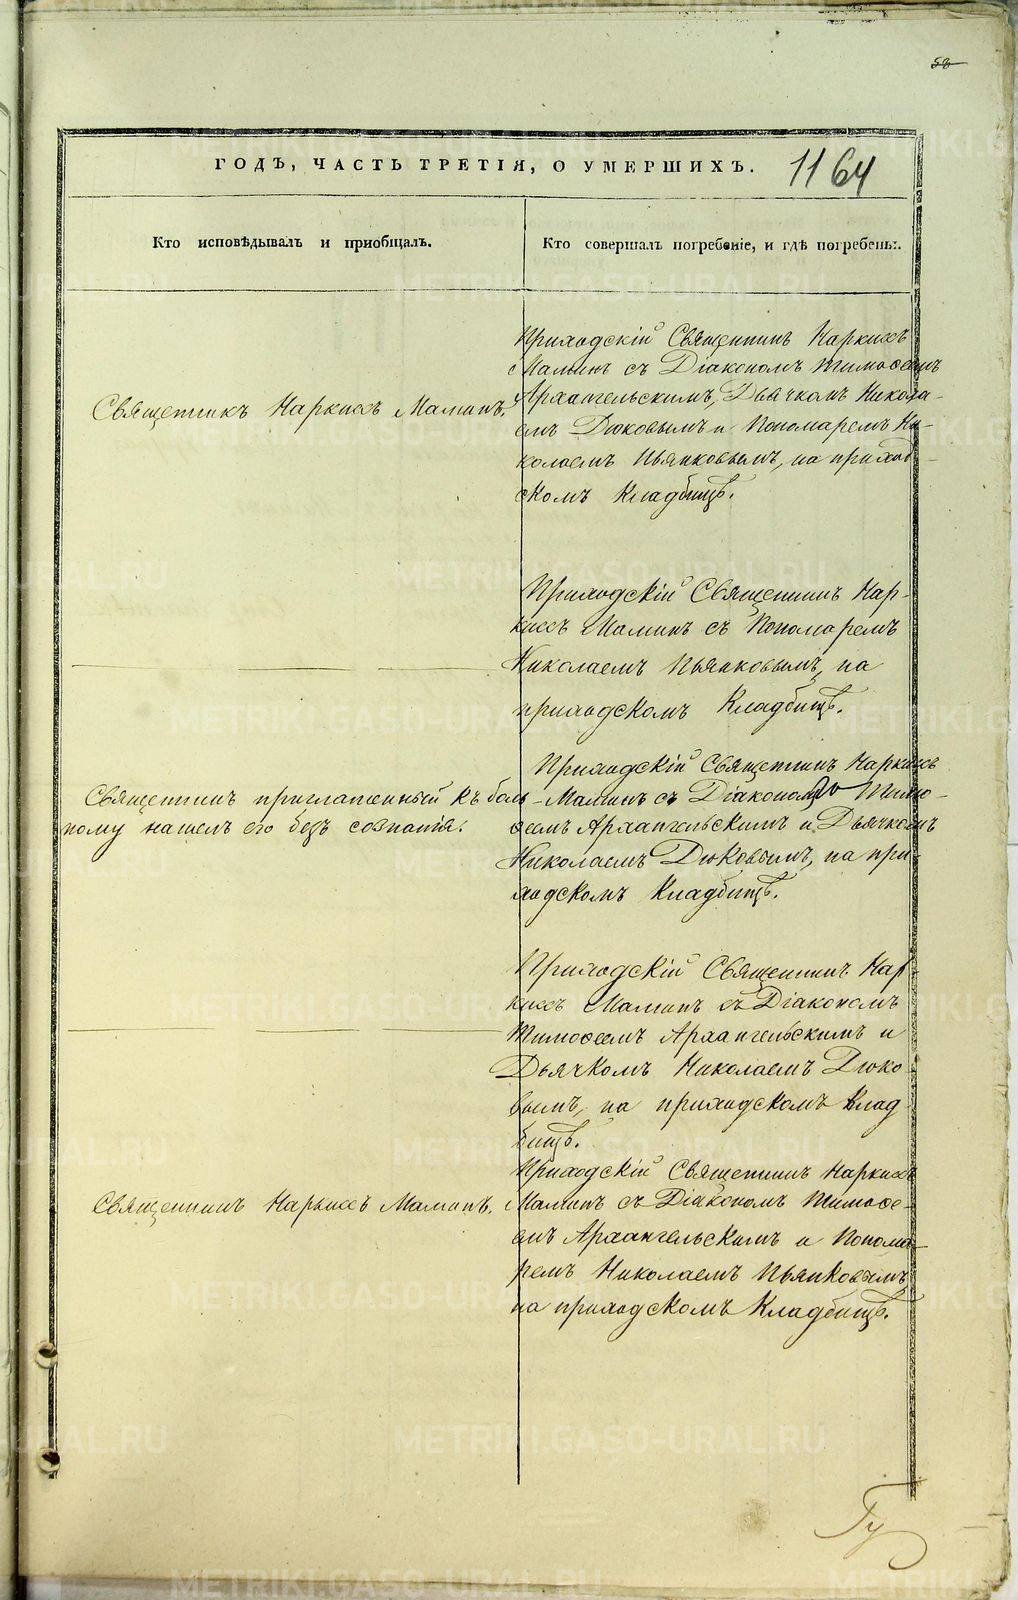 58
ГОДЪ, ЧАСТЬ ТРЕТІЯ, О УМЕРШИХЪ.
1164
Кто исповѣдывалъ и пріобщалъ.
Кто совершалъ погребеніе, и гдѣ погребены.
Священникъ Наркисъ Маминъ.
Приходскій Священникъ Наркисъ
Маминъ съ Діакономъ Тимоѳеемъ
Архангельскимъ, Дьячкомъ Никола-
емъ Дюковымъ и Пономаремъ Ни-
колаемъ Пьянковымъ, на приход-
скомъ кладбищѣ.
Приходскій Священникъ Нар-
кисъ Маминъ съ Пономаремъ
Николаемъ Пьянковымъ, на
приходскомъ кладбищѣ.
Священникъ приглашенный къ боль-
ному нашелъ его безъ сознанія.
Приходскій Священникъ Наркисъ
Маминъ съ Діакономъ Тимо-
ѳеемъ Архангельскимъ и Дьячкомъ
Николаемъ Дюковымъ, на при-
ходскомъ кладбищѣ.
Приходскій Священникъ Нар-
кисъ Маминъ съ Діакономъ
Тимоѳеемъ Архангельскимъ и
Дьячкомъ Николаемъ Дюко-
вымъ, на приходскомъ клад-
бищѣ.
Священникъ Наркисъ Маминъ.
Приходскій Священникъ Наркисъ
Маминъ съ Діакономъ Тимоѳе-
емъ Архангельскимъ и Понома-
ремъ Николаемъ Пьянковымъ,
на приходскомъ кладбищѣ.
Гу
METRIKI.GASO-URAL.RU